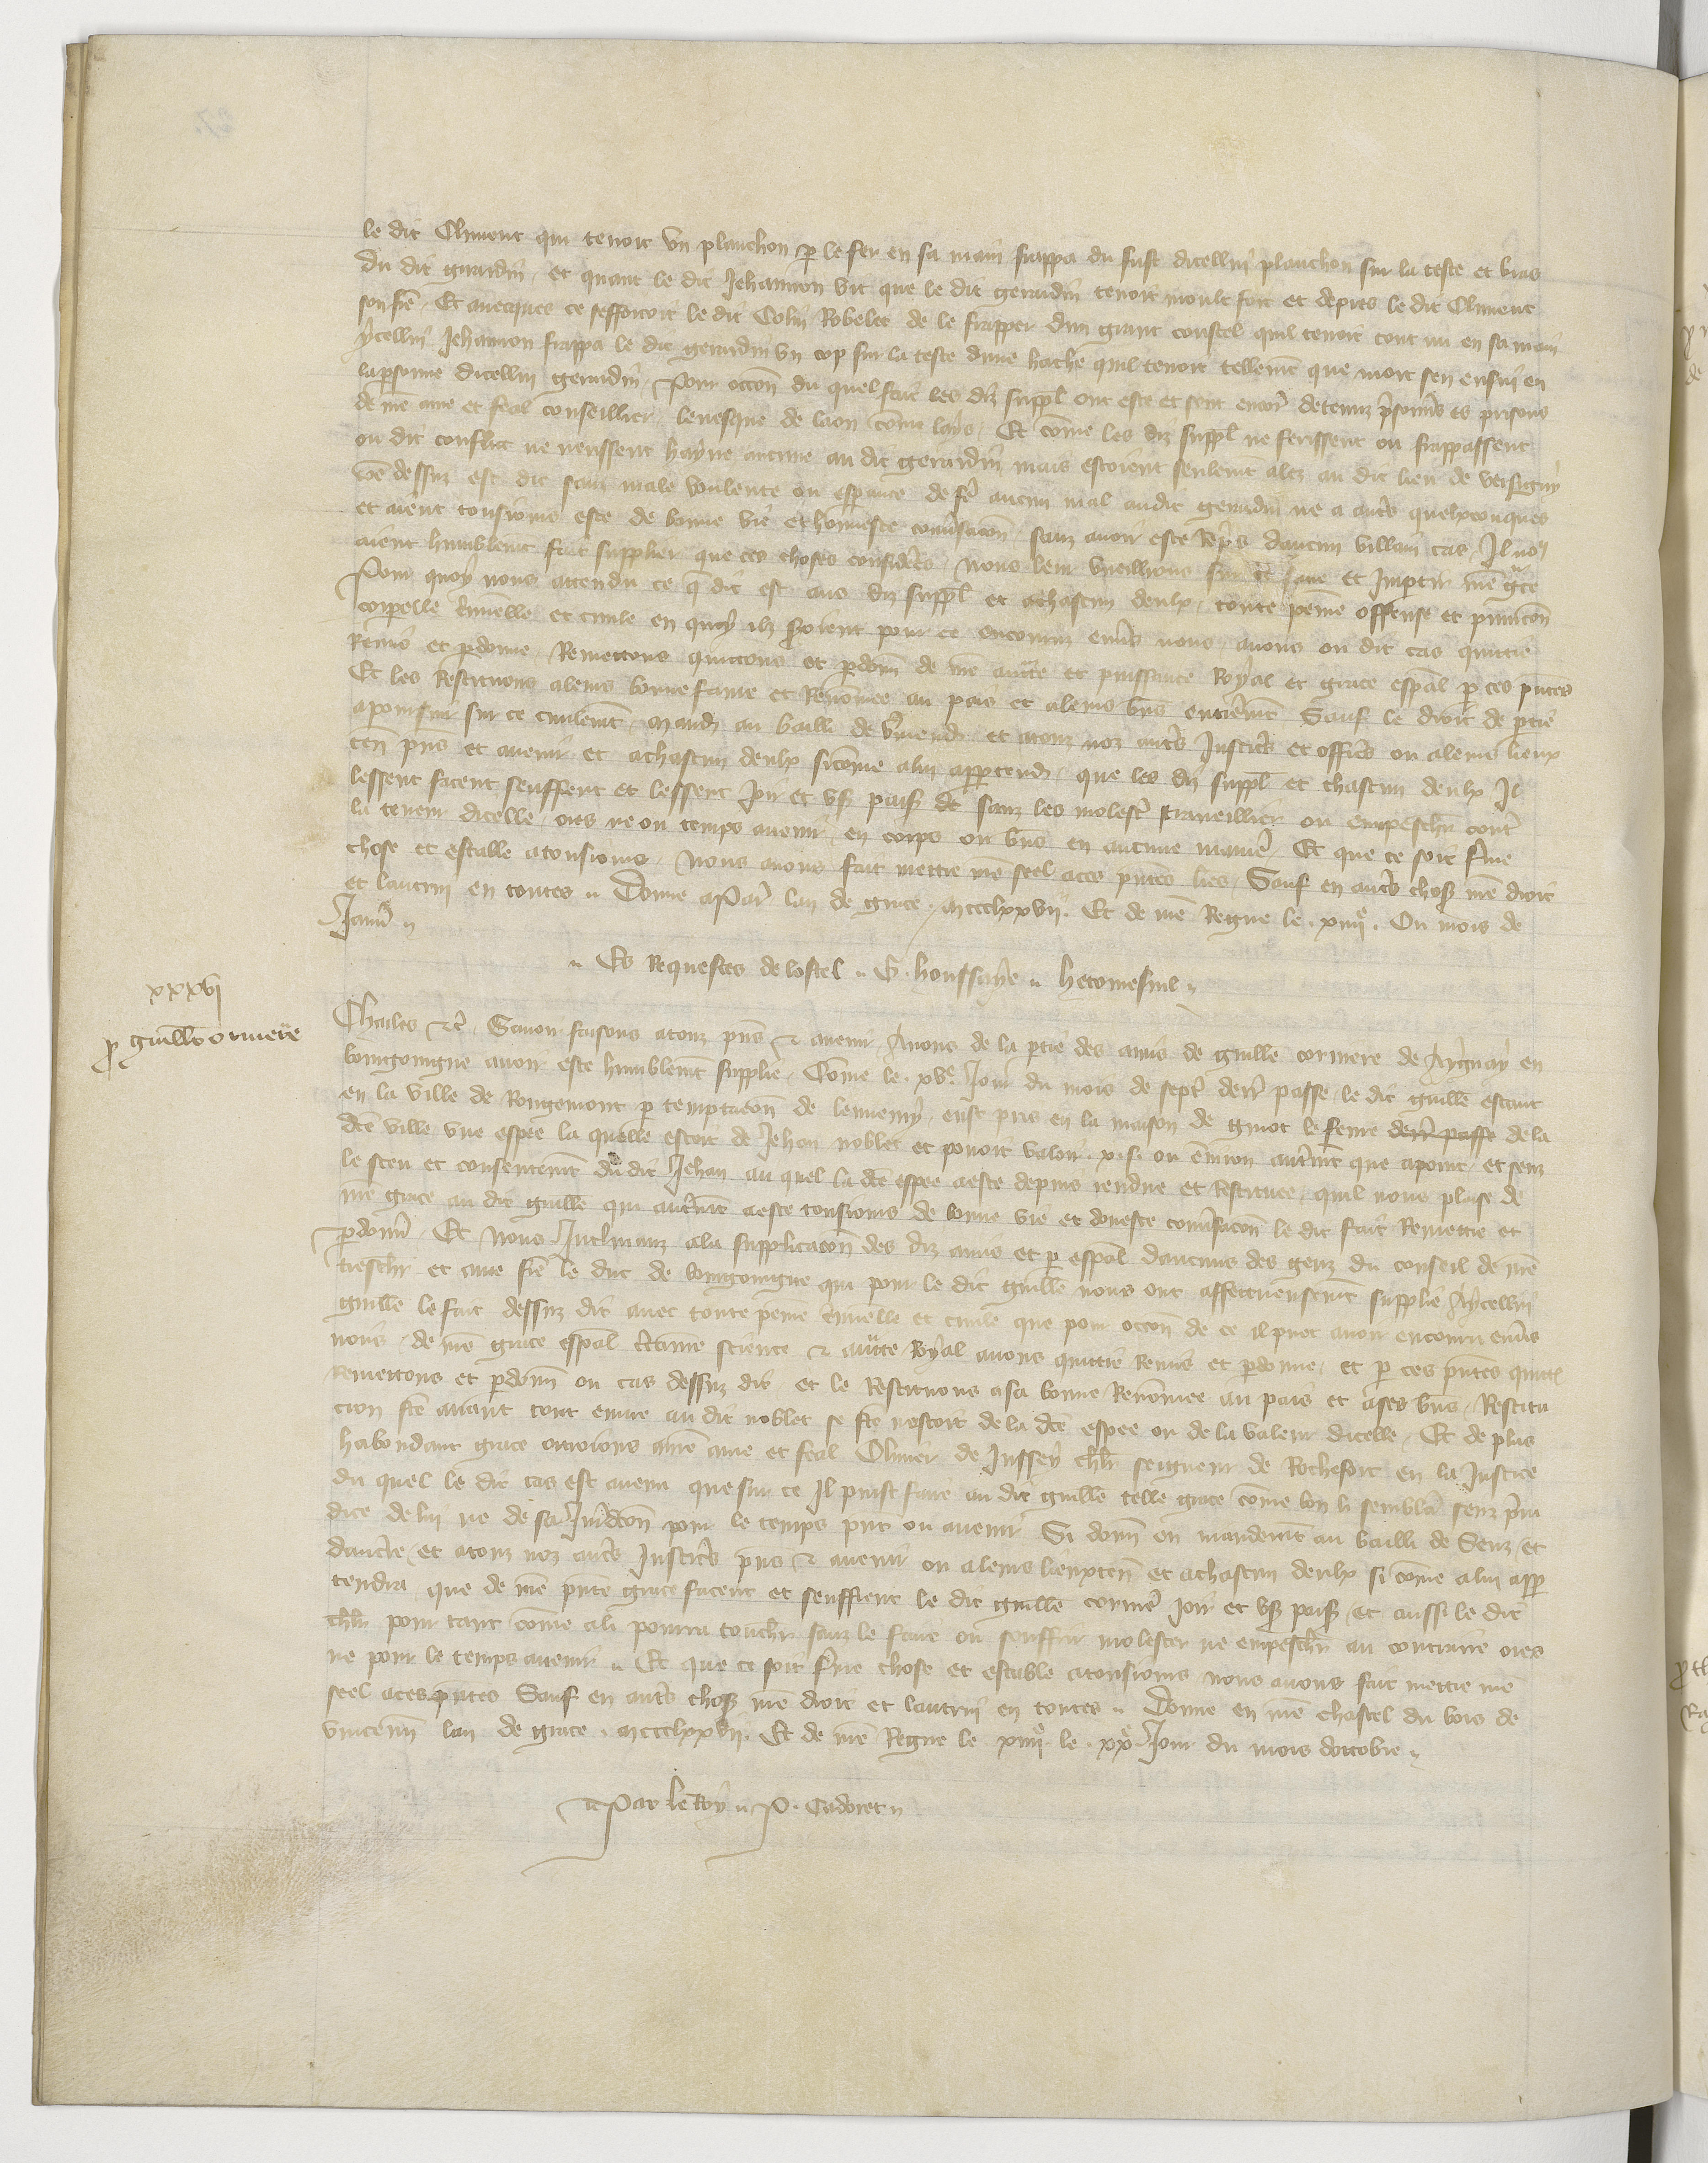 le dit Climent qui tenoit un planchon p le fer en sa main frappa du fust dicellui planchon sur la teste et bras
du dit gerardin, et quant le dit Jehannon vit que le dit gerardin tenoit moult fort et depres le dit Climent
son fre, Et avecques ce sefforcoit le dit Colin Robelet de le frapper dun grant coustel quil tenoit tout nu en sa main
ycellui Jehannon frappa le dit gerardin un cop sur la teste dune hache quil tenoit tellemt que mort sen ensui en
la psonne dicellui gerardin, Pour occon du quel fait les diz suppl ont este et sont encor detenuz psonns es prisons
de nre ame et feal conseillier levesque de laon comu lays, Et come les diz suppl ne ferissent ou frappassent
ou dit conflict ne neussent hayne aucune au dit gerardin mais estoient seulemt alez au dit lieu de versigny
coe dessuz est dit sanz male voulente ou esperance de fe aucun mal audit gerardin ne a auts quelxconques
et aient tousiours este de bonne vie et honneste conusacon sanz avoir este Repris daucun villain cas, Il nos
aient humblemt fait supplier que ces choses considerees, nous leur vueillions sur ce faire et Impartir nre grce
Pour quoy nous attendu ce q dit est aus diz suppl et achascun deulx, toute peine offense et punicon
corporelle criminelle et civile en quoy ilz seroient pour ce encouruz envs nous, avons ou dit cas quittie
Remis et pdonne, Remettons quittons et pdonn de nre aucte et puissance Royal et grace espal p ces pntes
Et les Restituons aleurs bonne fame et Renomee au pais et aleurs bns entieremt Sauf le droit de ptie
apoursuir sur ce civilemt, Mand au bailli de Vmend et atouz noz auts Justiciers et officiers ou aleurs lieux
ten pns et avenir et achascun deulx sicome alui apptend, que les diz suppl et chascun deulx Il
lessent facent seuffrent et lessent Joir et us paisib sanz les molest travaillier ou empeschier cont
la teneur dicelle, ores ne ou temps avenir en corps ou bns en aucune manie, Et que ce soit ferme
chose et estalle atousiours, Nous avons fait mettre nre seel aces pntes lres, Sauf en auts chos nre droit
et lautrui en toutes. Donne a Par lan de grace, mccclxxvii. Et de nre Regne le .xiiii. Ou mois de
Janv
Es Requestes de lostel. G. houssaye. hetomesnil
xxxvi
p guille cormere
Charles etc. Savoir faisons atouz pns et avenir, Avons de la ptie des amis de guille cormere de Aygnay en
bourgoingne avoir este humblemt supplie, Come le .xve. Jour du mois de sept derr passe, le dit guille estant
en la ville de Rougemont p temptacon de lennemy, eust pris en la maison de guiot le fevre derr passe de la
dte ville une espee la quelle estoit de Jehan noblet et povoit valoir .x. s. ou environ autremt que apoint et senz
le sceu et consentemt du dit Jehan au quel la dte espee aeste depuis rendue et Restituee, quil nous plaise de
nre grace au dit guille qui autremt aeste tousiours de bonne vie et doneste conusacon le dit fait Remettre et
pdonner, Et Nous Inclinanz ala supplicacon des diz amis et p espal daucuns des genz du conseil de nre
tresch et ame fre le duc de bourgoingne qui pour le dit guille nous ont affectueusemt supplie Aycellui
guille le fait dessuz dit avec toute peine criminelle et civile que pour occon de ce il puet avoir encouru envs
nous, de nre grace espal certaine science et aucte Royal avons quittie Remis et pdonne, et p ces pntes quitt
Remettons et pdonn ou cas dessuz dit et le Restituons asa bonne Renomee au pais et ases bns, Restitu
cion fte avant tout euvre au dit noblet se fte nestoit de la dte espee ou de la valeur dicelle, Et de plus
habondant grace ottroions anre ame et feal Olivier de Jussey chlr seigneur de Rochefort en la Justice
du quel le dit cas est avenu que sur ce Il puist faire au dit guille telle grace come bon li semblera senz preiu
dice de lui ne de sa Juridcon pour le temps pnt ou avenir Si donn en mandemt au bailli de Senz et
daucerre, et atouz noz auts Justiciers pns et avenir ou aleurs lieuxten et achascun deulx si come alui app
tendra que de nre pnte grace facent et seuffrent le dit guille corme Joir et us paisib, et aussi le dit
chlr pour tant come ali pourra touchr sanz le faire ou souffrir molester ne empeschr au contraire ores
ne pour le temps avenir. Et que ce soit ferme chose et estable atousiours nous avons fait mettre nre
seel aces pntes Sauf en auts chos nre droit et lautrui en toutes. Donne en nre chastel du bois de
vincenn lan de grace. mccclxxvii. Et de nre Regne le xiiii. le .xxe Jour du mois doctobre
Par le Roy. P. Cadoret